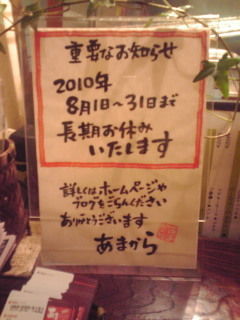 重要なお知らせ
2010年
8月1日～31日まで
長期お休み
いたします
詳しくはホームページや
ブログをごらんください
ありがとうございます
あまから